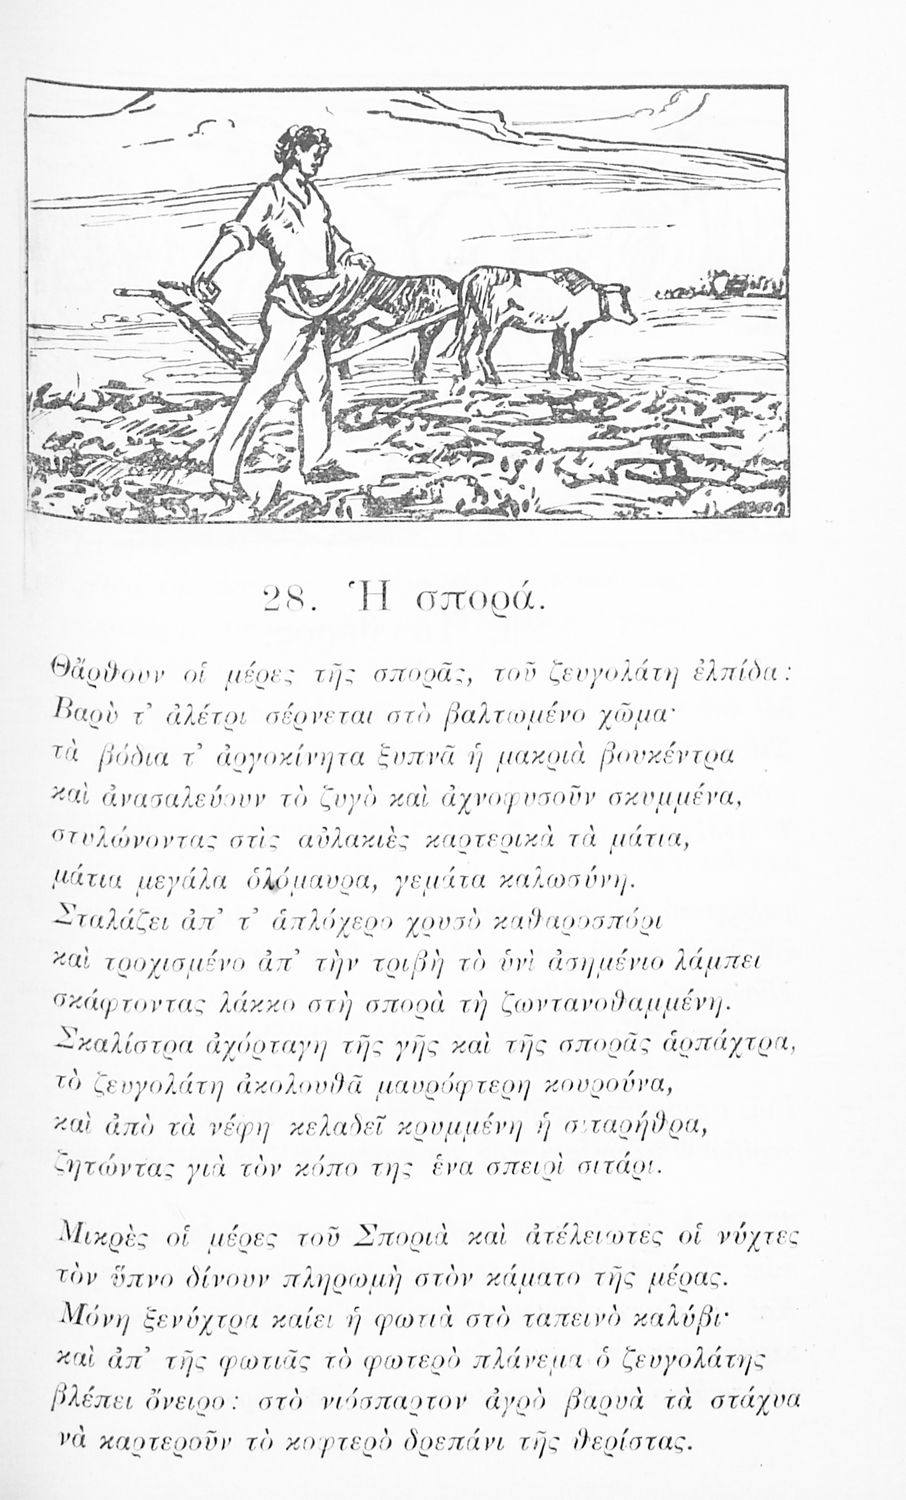 28. Ἡ σπορά.
Θἄρθουν οἱ μέρες τῆς σπορᾶς, τοῦ ζευγολάτη ἐλπίδα:
Βαρὺ τ’ ἀλέτρι σέρνεται στὸ βαλτωμένο χῶμα·
τὰ βόδια τ’ ἀργοκίνητα ξυπνᾶ ἡ μακριὰ βουκέντρα
καὶ ἀνασαλεύουν τὸ ζυγὸ καὶ ἀχνοφυσοῦν σκυμμένα,
στυλώνοντας στὶς αὐλακιὲς καρτερικὰ τὰ μάτια,
μάτια μεγάλα ὁλόμαυρα, γεμάτα καλωσύνη.
Σταλάζει ἀπ’ τ’ ἁπλόχερο χρυσὸ καθαροσπόρι
καὶ τροχισμένο ἀπ’ τὴν τριβὴ τὸ ὑνὶ ἀσημένιο λάμπει
σκάφτοντας λάκκο στὴ σπορὰ τὴ ζωντανοθαμμένη.
Σκαλίστρα ἀχόρταγη τῆς γῆς καὶ τῆς σπορᾶς ἁρπάχτρα,
τὸ ζευγολάτη ἀκολουθᾶ μαυρόφτερη κουρούνα,
καὶ ἀπὸ τὰ νέφη κελαδεῖ κρυμμένη ἡ σιταρήθρα,
ζητώντας γιὰ τὸν κόπο της ἕνα σπειρὶ σιτάρι.
Μικρὲς οἱ μέρες τοῦ Σποριὰ καὶ ἀτέλειωτες οἱ νύχτες
τὸν ὕπνο δίνουν πληρωμὴ στὸν κάματο τῆς μέρας.
Μόνη ξενύχτρα καίει ἡ φωτιὰ στὸ ταπεινὸ καλύβι·
καὶ ἀπ’ τῆς φωτιᾶς τὸ φωτερὸ πλάνεμα ὁ ζευγολάτης
βλέπει ὄνειρο: στὸ νιόσπαρτον ἀγρὸ βαρυὰ τὰ στάχυα
νὰ καρτεροῦν τὸ κοφτερὸ δρεπάνι τῆς θερίστας.